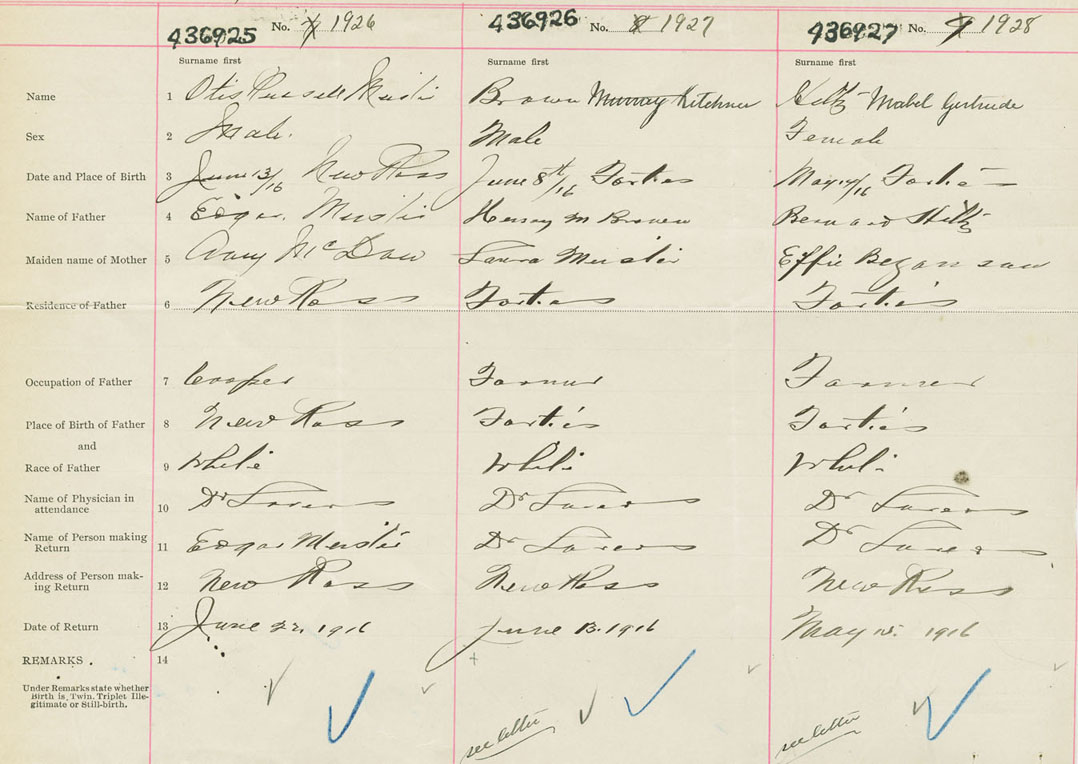 436925 No. 1926 436926 No. 1927 436927 No. 1928
Surname first Surname first Surname first
Name 1 Otis Russell Brown Murray Kitchner Mabel Gertrude
Sex 2 Male. Male Female
Date and Place of Birth 3 June 13/16 New Ross June 8th/16 Forties May /16 Forties
Name of Father 4 Edgar Henry M Brown Bernard Hiltz
Maiden name of Mother 5 Laura Meister Effie
Residence of Father 6 New Ross Forties Forties
Occupation of Father 7 Cooper Farmer Farmer
Place of Birth of Father 8 New Ross Forties Forties
and
Race of Father 9 White White White
Name of Physician in
attendance 10 Dr Dr Dr
Name of Person making
Return 11 Edgar Meister Dr Dr
Address of Person mak-
ing Return 12 New Ross New Ross New Ross
Date of Return 13 June 22. 1916 June 13. 1916 May 15. 1916
REMARKS . 14
Under Remarks state whether
Birth is, Twin, Triplet Ille-
gitimate or Still-birth.
see letter see letter